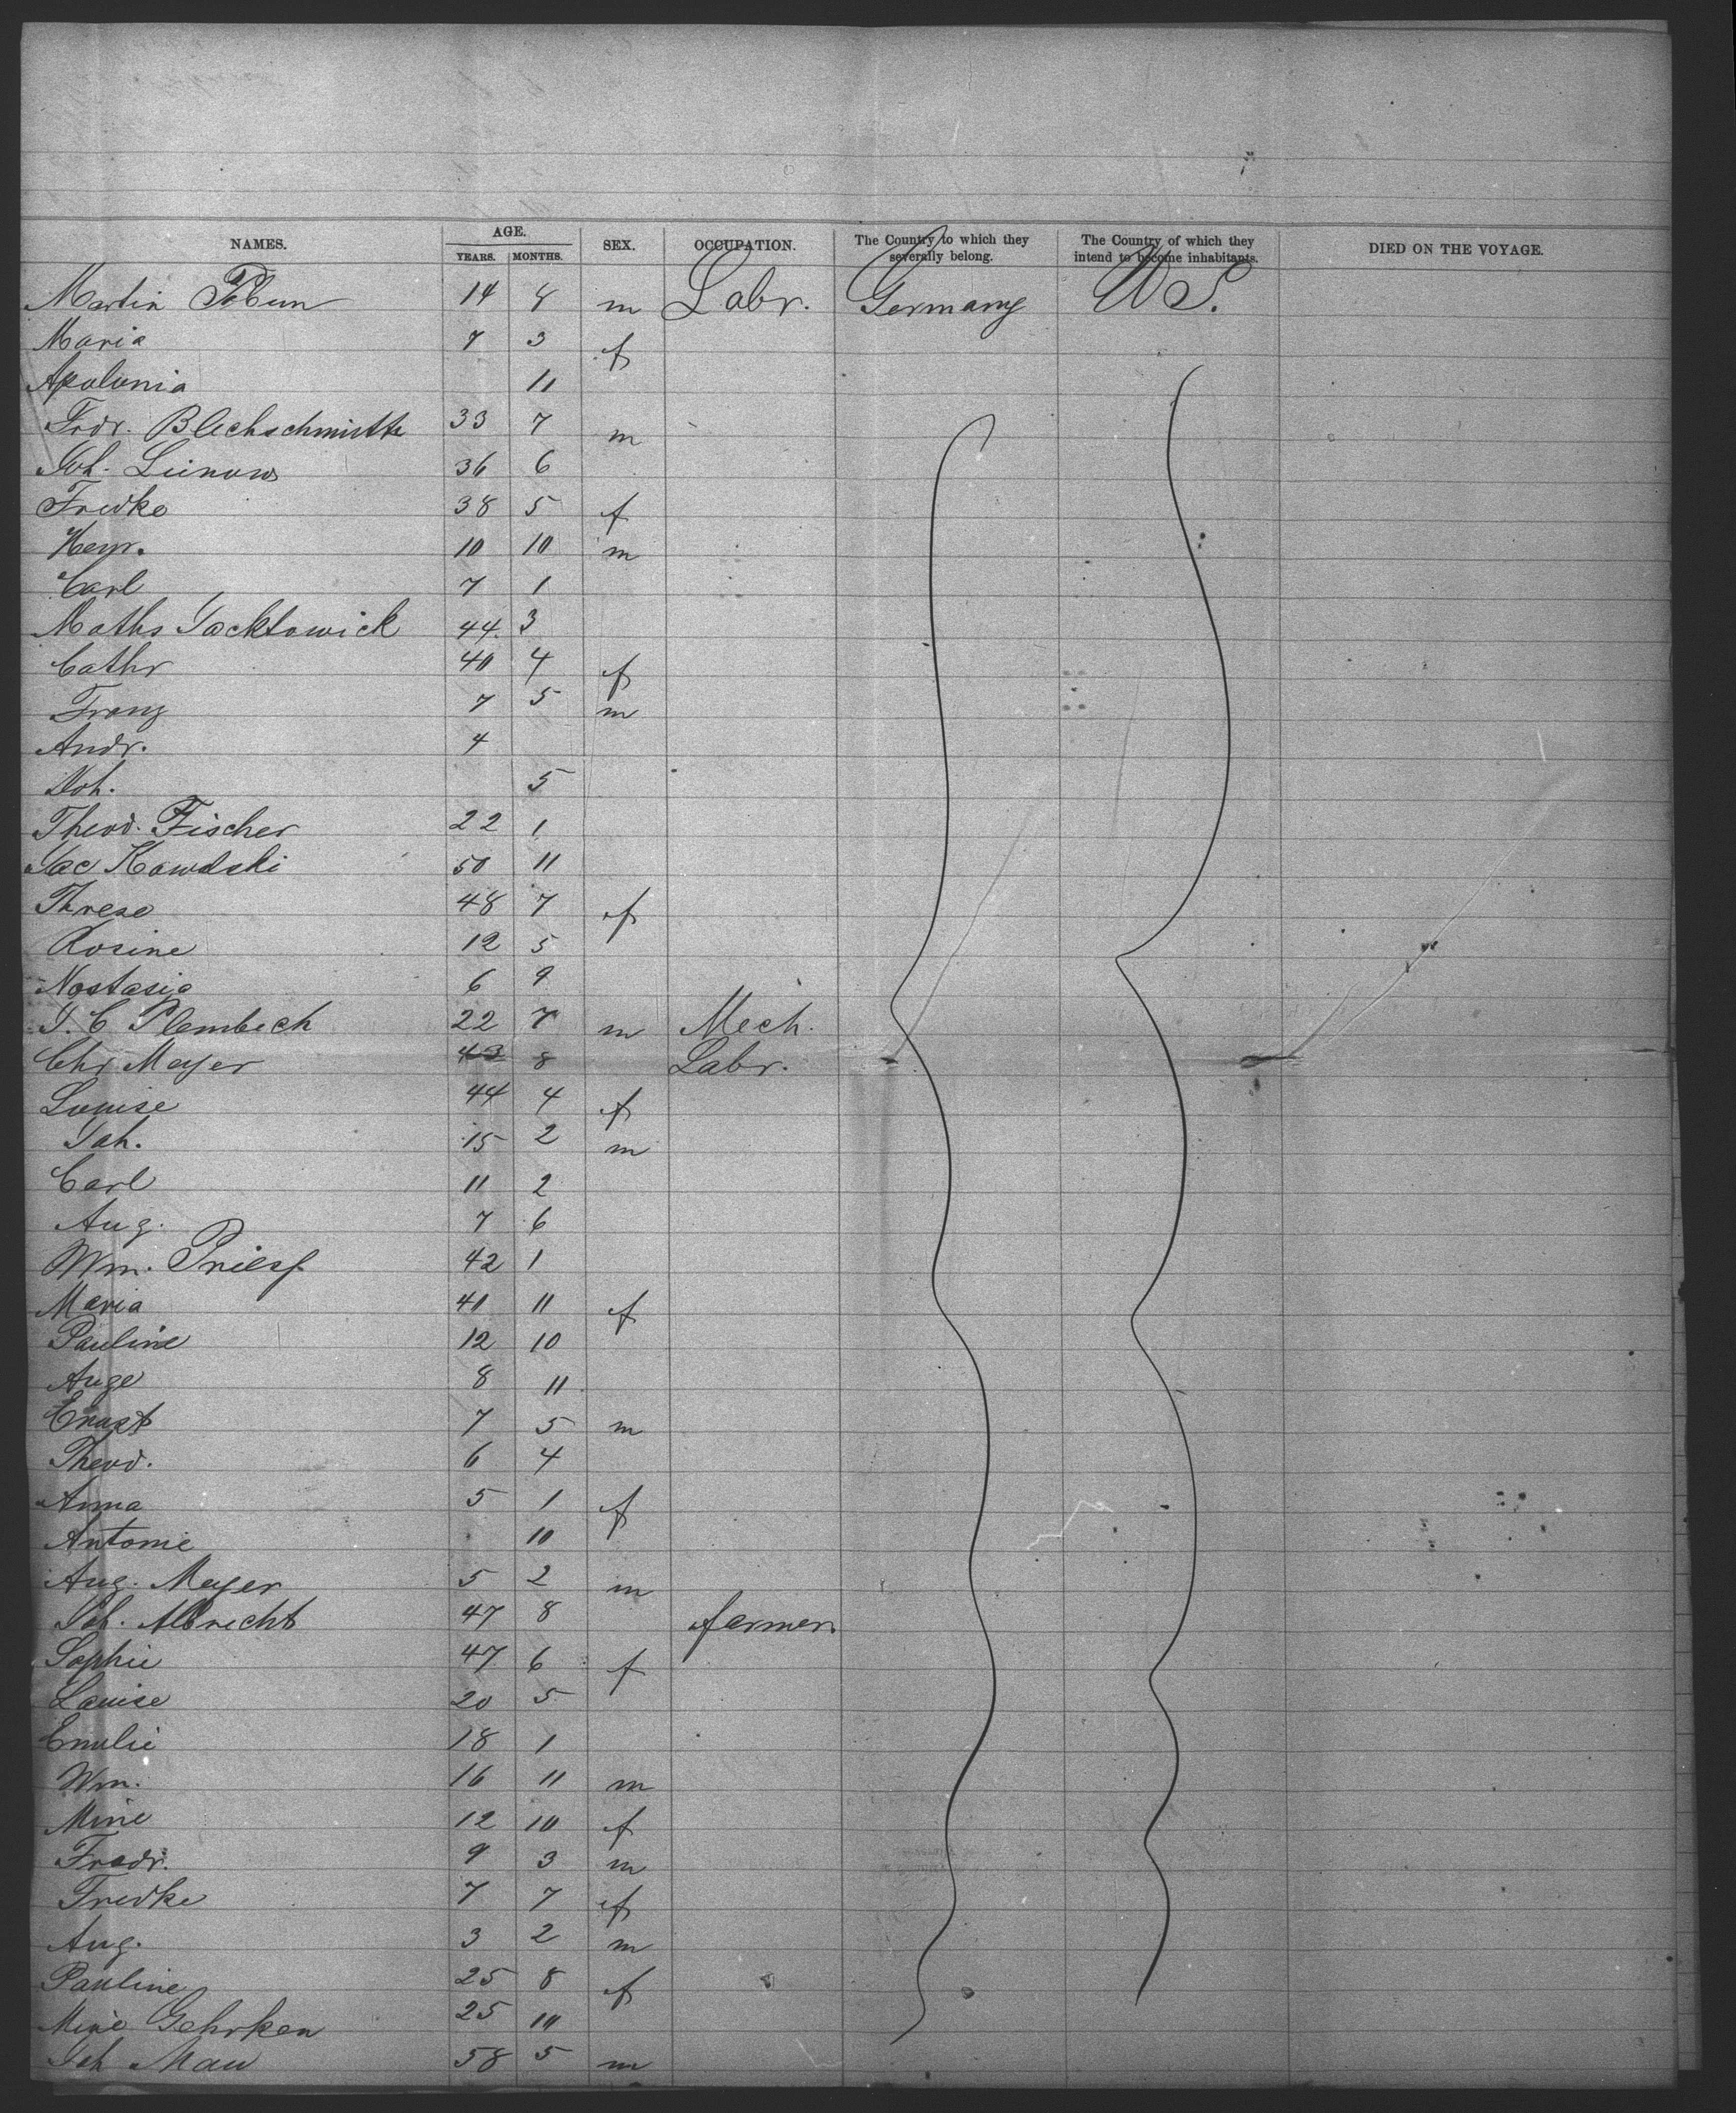 NAMES. AGE. YEARS. MONTHS. SEX. OCCUPATION. The Country to which they severally belong. The Country of which they intend to become inhabitants. DIED ON THE VOYAGE.
Martin 14 8 m Labr. Germany U S.
Maria 7 3 f
Apolonia 11
Frdr. Blechschmidth 33 7 m
Joh. Lünows 36 6
Fredke 38 5 f
Henr. 10 10 m
Carl 7 1
Maths Jacktowick 44 3
Cathr 40 4 f
Franz 7 5 m
Andr. 4
Joh. 5
Theod. Fischer 22 1
Jac Kowalski 50 11
Threse 48 7 f
Rosine 12 5
Nostasia 6 9
J. C Plembeck 22 7 m Mech.
Chr Meyer 43 8 Labr.
Louise 44 4 f
Joh. 15 2 m
Carl 11 2
Aug. 7 6
Wm. Priess 42 1
Maria 41 11 f
Pauline 12 10
Auge 8 11
Ernst 7 5 m
Theod. 6 4
Anna 5 1 f
Antonie 10
Aug. Meyer 5 2 m
Joh. Albrecht 47 8 farmer
Sophie 47 6 f
Louise 20 5
Emilie 18 1
Wm. 16 11 m
Mine 12 10 f
Fredr. 9 3 m
Fredke 7 7 f
Aug. 3 2 m
Pauline 25 8 f
Mine Gehrken 25 10
Joh Mau 58 5 m